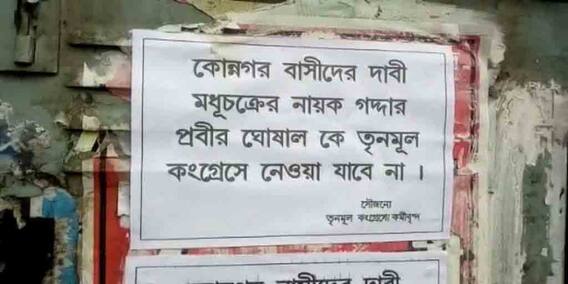 কোন্নগর বাসীদের দাবী
মধুচক্রের নায়ক গদ্দার
প্রবীর ঘোষাল কে তৃনমূল
কংগ্রেসে নেওয়া যাবে না ।
সৌজন্যে
তৃনমূল কংগ্রেসের কর্মীবৃন্দ
বাসীদের দাবী